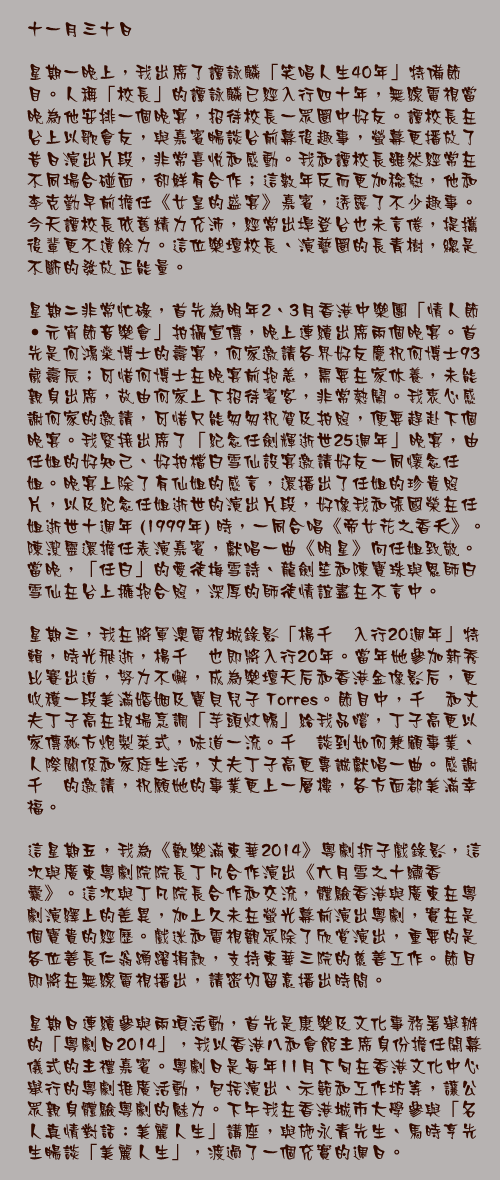 十一月三十日
星期一晚上，我出席了譚詠麟「笑唱人生40年」特備節
目。人稱「校長」的譚詠麟已經入行四十年，無線電視當
晚為他安排一個晚宴，招待校長一眾圈中好友。譚校長在
台上以歌會友，與嘉賓暢談台前幕後趣事，螢幕更播放了
昔日演出片段，非常喜悅和感動。我和譚校長雖然經常在
不同場合碰面，卻鮮有合作；這數年反而更加稔熟，他和
李克勤早前擔任《女皇的盛宴》嘉賓，透露了不少趣事。
今天譚校長依舊精力充沛，經常出埠登台也未言倦，提攜
後輩更不遺餘力。這位樂壇校長、演藝圈的長青樹，總是
不斷的發放正能量。
星期二非常忙碌，首先為明年2、3月香港中樂團「情人節
•元宵節音樂會」拍攝宣傳，晚上連續出席兩個晚宴。首
先是何鴻燊博士的壽宴，何家邀請各界好友慶祝何博士93
歲壽辰；可惜何博士在晚宴前抱恙，需要在家休養，未能
親自出席，故由何家上下招待賓客，非常熱鬧。我衷心感
謝何家的邀請，可惜只能匆匆祝賀及拍照，便要趕赴下個
晚宴。我緊接出席了「紀念任劍輝逝世25週年」晚宴，由
任姐的好知己、好拍檔白雪仙設宴邀請好友一同懷念任
姐。晚宴上除了有仙姐的感言，還播出了任姐的珍貴照
片，以及紀念任姐逝世的演出片段，好像我和張國榮在任
姐逝世十週年 (1999年) 時，一同合唱《帝女花之香夭》。
陳潔靈還擔任表演嘉賓，獻唱一曲《明星》向任姐致敬。
當晚，「任白」的愛徒梅雪詩、龍劍笙和陳寶珠與恩師白
雪仙在台上擁抱合照，深厚的師徒情誼盡在不言中。
星期三，我在將軍澳電視城錄影「楊千　入行20週年」特
輯，時光飛逝，楊千　也即將入行20年。當年她參加新秀
比賽出道，努力不懈，成為樂壇天后和香港金像影后，更
收穫一段美滿婚姻及寶貝兒子 Torres。節目中，千　和丈
夫丁子高在現場烹調「芋頭炆鴨」給我品嚐，丁子高更以
家傳秘方炮製菜式，味道一流。千　談到如何兼顧事業、
人際關係和家庭生活，丈夫丁子高更專誠獻唱一曲。感謝
千　的邀請，祝願她的事業更上一層樓，各方面都美滿幸
福。
這星期五，我為《歡樂滿東華2014》粵劇折子戲錄影，這
次與廣東粵劇院院長丁凡合作演出《六月雪之十繡香
囊》。這次與丁凡院長合作和交流，體驗香港與廣東在粵
劇演繹上的差異，加上久未在螢光幕前演出粵劇，實在是
個寶貴的經歷。戲迷和電視觀眾除了欣賞演出，重要的是
各位善長仁翁踴躍捐款，支持東華三院的慈善工作。節目
即將在無線電視播出，請密切留意播出時間。
星期日連續參與兩項活動，首先是康樂及文化事務署舉辦
的「粵劇日2014」，我以香港八和會館主席身份擔任開幕
儀式的主禮嘉賓。粵劇日是每年11月下旬在香港文化中心
舉行的粵劇推廣活動，包括演出、示範和工作坊等，讓公
眾親身體驗粵劇的魅力。下午我在香港城市大學參與「名
人真情對話：美麗人生」講座，與施永青先生、馬時亨先
生暢談「美麗人生」，渡過了一個充實的週日。